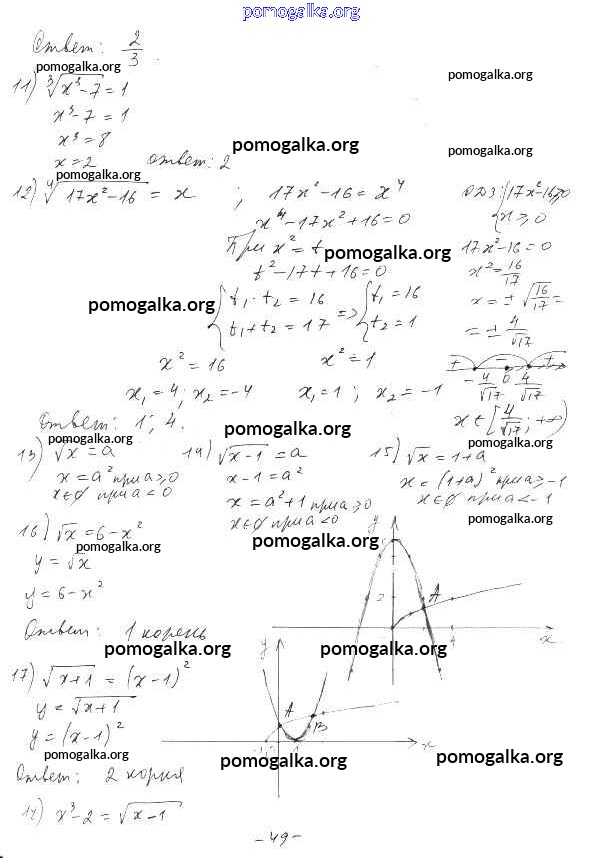 pomogalka.org
Ответ: 2/3.
pomogalka.org pomogalka.org
11) ∛(x³-7) = 1
x³-7 = 1
x³ = 8
pomogalka.org pomogalka.org
x = 2 ответ: 2
pomogalka.org
12) ⁴√(17x²-16) = x ; 17x²-16 = x⁴
x⁴-17x²+16=0
При x² = t
pomogalka.org
t²-17t+16=0
{ t₁·t₂ = 16 => { t₁ = 16
{ t₁+t₂ = 17 { t₂ = 1
pomogalka.org
x² = 16 x² = 1
x₁ = 4; x₂ = -4 x₁ = 1; x₂ = -1
ОДЗ: { 17x²-16≥0
{ x ≥ 0
17x²-16=0
x² = 16/17
x = ± √(16/17) =
= ± 4/√17
+ - +
-4/√17 0 4/√17
x ∈ [4/√17; +∞)
Ответ: 1; 4.
pomogalka.org pomogalka.org
13) √x = a
x = a² при a ≥ 0
x∈∅ при a < 0
14) √(x-1) = a
x-1 = a²
x = a²+1 при a ≥ 0
x∈∅ при a < 0
15) √x = 1+a
x = (1+a)² при a ≥ -1
x∈∅ при a < -1
pomogalka.org
16) √x = 6-x²
pomogalka.org pomogalka.org
y = √x
y = 6-x²
y
2
A
4
x
Ответ: 1 корень
pomogalka.org pomogalka.org
17) √(x+1) = (x-1)²
y = √(x+1)
y = (x-1)²
y
A
B
-1
1
x
pomogalka.org pomogalka.org pomogalka.org
Ответ: 2 корня
x³-2 = √(x-1)
-49-